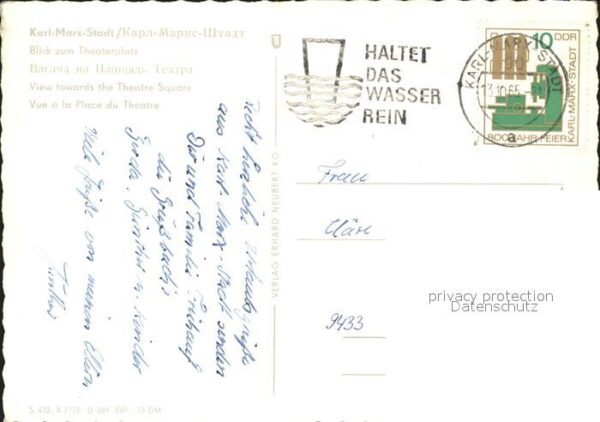 Karl-Marx-Stadt / Карл-Маркс-Штадт
Blick zum Theaterplatz
Взгляд на Площадь Театра
View towards the Theatre Square
Vue à la Place du Théatre
HALTET
DAS
WASSER
REIN
KARL-MARX-STADT
13.10.65
a
10 DDR
800 JAHRFEIER
KARL-MARX-STADT
Recht herzliche Urlaubsgrüße
aus Karl-Marx-Stadt senden
Dir und Familie Frühauf
die
Gerda, Günther u. Kinder
Viele Grüße von meinen Eltern
VERLAG ERHARD NEUBERT KG
Frau
Kläre
9433
privacy protection
Datenschutz
S 432/A 7725 D 369 EVP -.15 DM